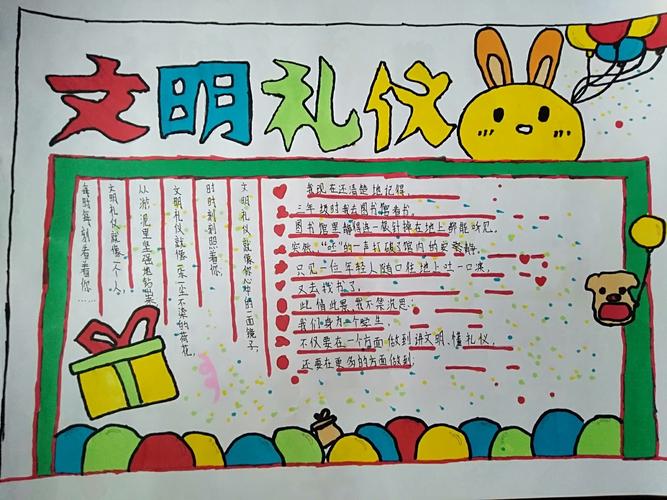 文明礼仪
文明礼仪就像你心中的一面镜子,
时时刻刻照着你.
文明礼仪就像一朵一尘不染的荷花,
从淤泥里坚强地钻出来
文明礼仪就像一个人,
每时每刻看着你……
我现在还清楚地记得,
三年级时我去图书馆看书.
图书馆里静得连一根针掉在地上都能听见.
突然,“呸”的一声打破了馆内的安静.
只见一位年轻人随口往地上吐一口痰.
又去找书了.
此情此景,我不禁沉思:
我们身为一个学生,
不仅要在一个方面做到讲文明、懂礼仪,
还要在更多的方面做到.